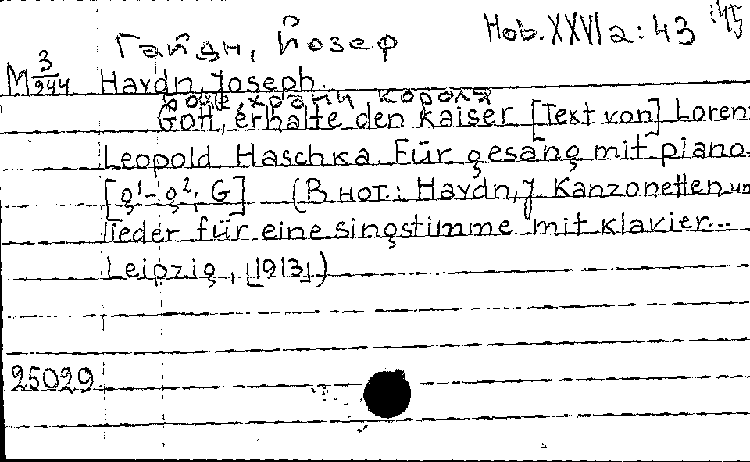 Hob. XXVIa: 43
Гайдн, Йозеф
M 3/944 Haydn, Joseph.
Боже, храни короля
Gott, erhalte den kaiser [Text von] Loren
Leopold Haschka Für gesang mit piano.
[g¹-g²; G] (В нот.: Haydn, J. Kanzonetten un
lieder für eine singstimme mit klavier...
Leipzig, [1913].)
25029